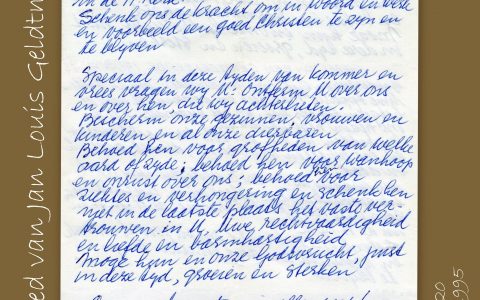 Schenk ons de kracht om in woord en
en voorbeeld een goed Christen te zyn en
te blyven
Speciaal in deze tyden van kommer en
vrees vragen wy U: Ontferm U over ons
en over hen, die wy achterlieten.
Bescherm onze gezinnen, vrouwen en
kinderen en al onze dierbaren
Behoed hen voor grofheden van welke
aard of zyde; behoed hen voor wanhoop
en onrust over ons; behoed hen voor
ziektes en verhongering en schenk hen
niet in de laatste plaats het vaste ver-
trouwen in U, Uwe rechtvaardigheid
en liefde en barmhartigheid
Moge hun en onze Godsvrucht, juist
in deze tyd, groeien en sterken
ed van Jan Louis Geldtm
20
995